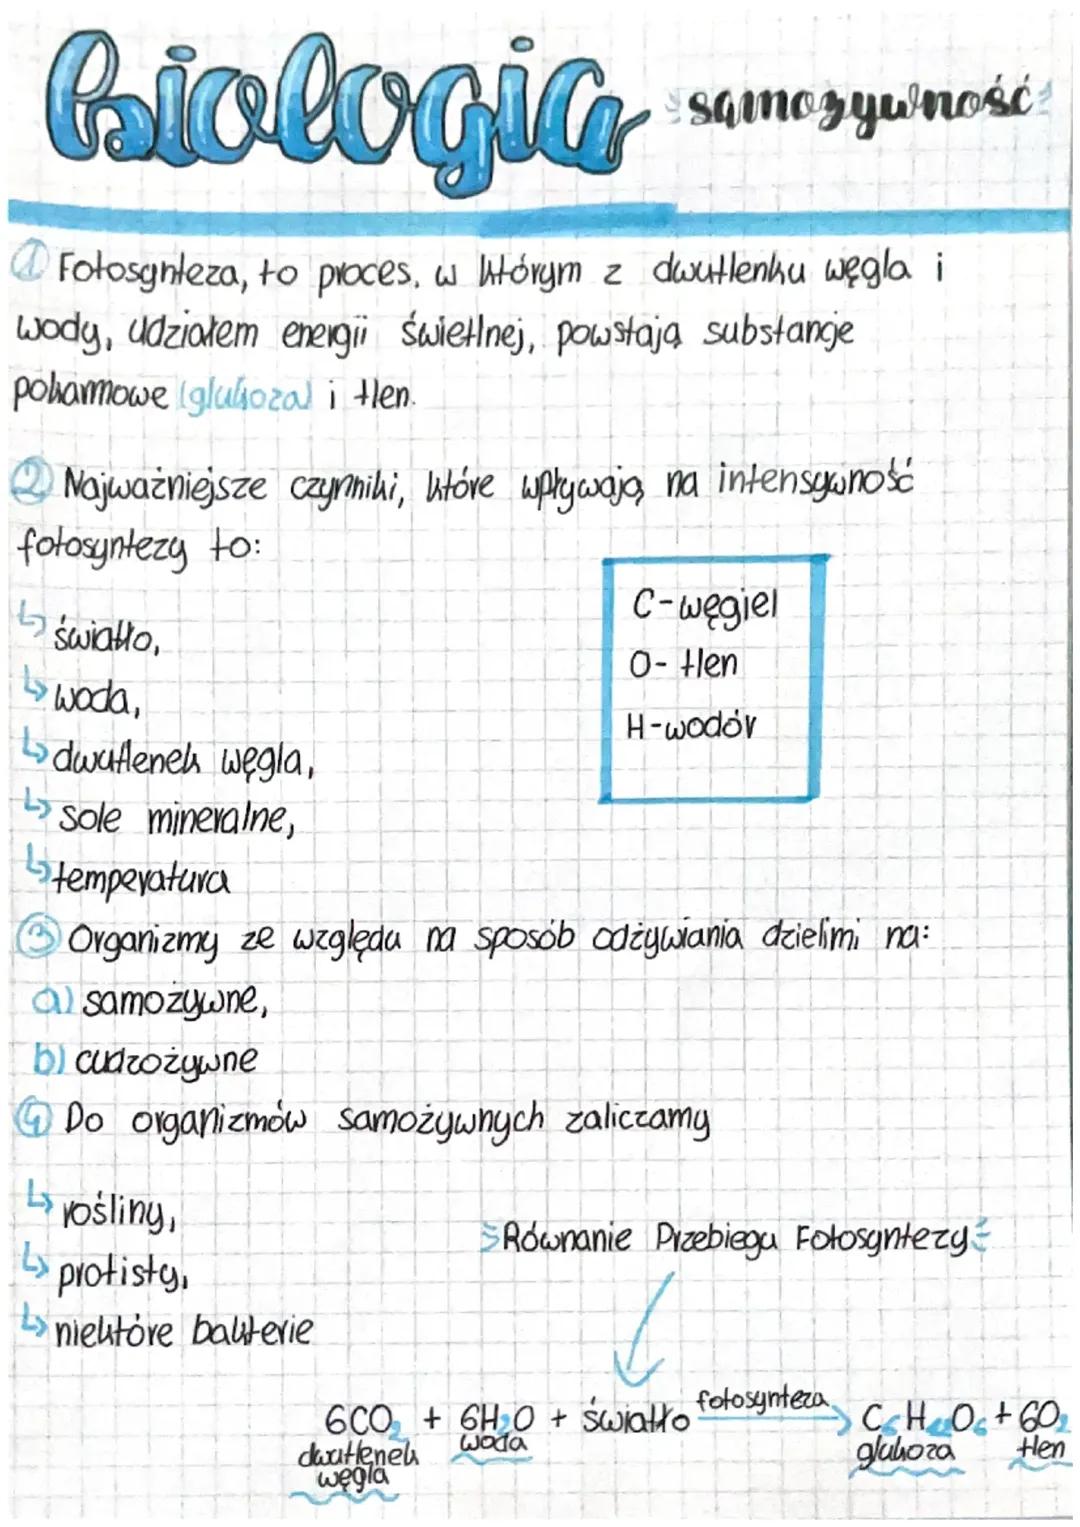 biologia samozywność
① Fotosynteza, to proces, w którym z dwutlenku węgla i
wody, udziałem energii świetlnej, powstają substancje
pokarmowe (glukoza) i tlen.
② Najważniejsze czynniki, które wpływają na intensywność
fotosyntezy to:
↳ światło,
↳ woda,
↳ dwutlenek węgla,
↳ sole mineralne,
↳ temperatura
C-węgiel
O-tlen
H-wodór
③ Organizmy ze względu na sposób odżywiania dzielimi na:
a) samożywne,
b) cudzożywne
④ Do organizmów samożywnych zaliczamy
↳ rośliny,
↳ protisty,
↳ niektóre bakterie
Równanie Przebiegu Fotosyntezy
6CO₂ + 6H₂O + światło fotosynteza → C₆H₁₂O₆ + 6O₂
dwutlenek węgla woda glukoza tlen